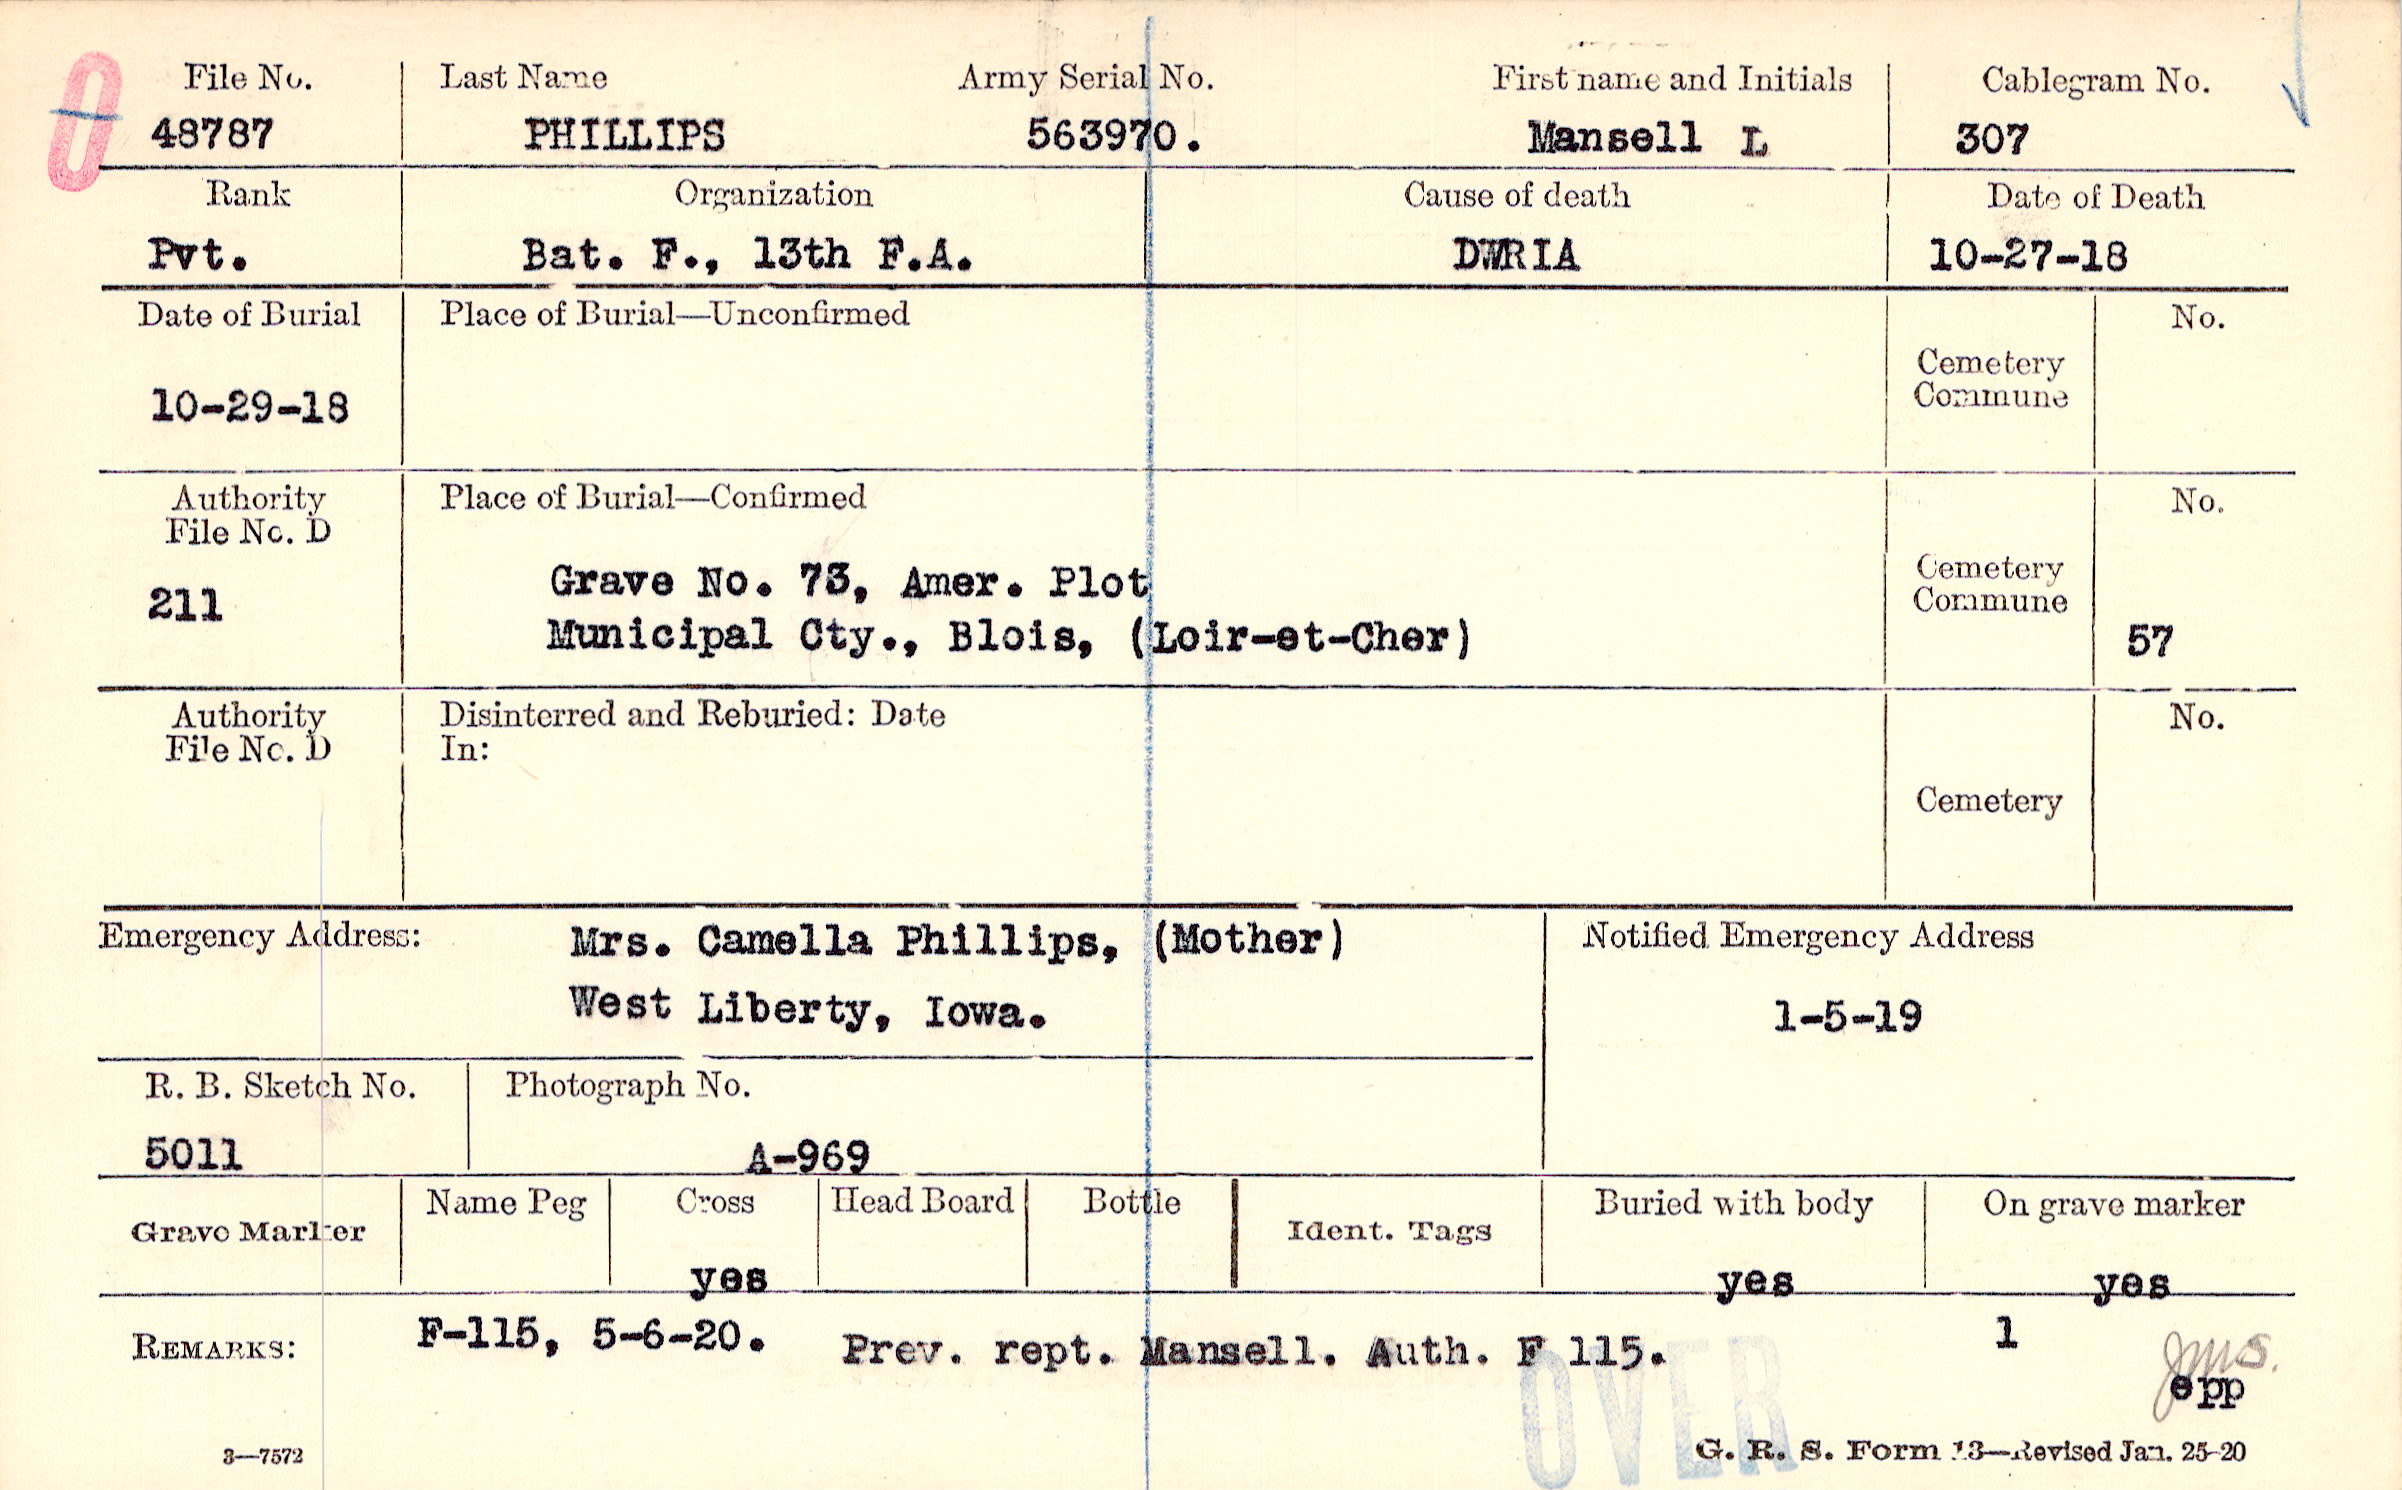 0
File No. Last Name Army Serial No. First name and Initials Cablegram No.
48787 PHILLIPS 563970. Mansell L 307
Rank Organization Cause of death Date of Death
Pvt. Bat. F., 13th F.A. DWRIA 10-27-18
Date of Burial Place of Burial—Unconfirmed No.
Cemetery
Commune
10-29-18
Authority Place of Burial—Confirmed No.
File No. D
Cemetery
Grave No. 73, Amer. Plot
Commune
211
Municipal Cty., Blois, (Loir-et-Cher) 57
Authority Disinterred and Reburied: Date No.
File No. D In:
Cemetery
Emergency Address: Mrs. Camella Phillips, (Mother) Notified Emergency Address
West Liberty, Iowa. 1-5-19
R. B. Sketch No. Photograph No.
5011 A-969
Grave Marker Name Peg Cross Head Board Bottle Ident. Tags Buried with body On grave marker
yes yes yes
REMARKS: F-115, 5-6-20. Prev. rept. Mansell. Auth. F 115. 1
JMS.
epp
OVER
3—7572 G. R. S. Form 13—Revised Jan. 25-20